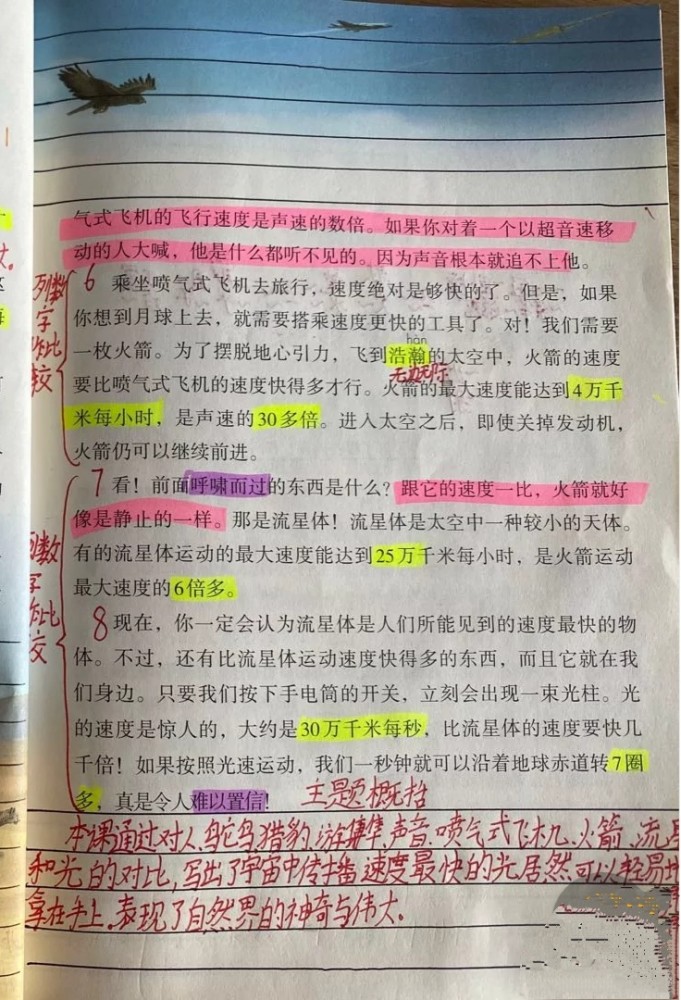 气式飞机的飞行速度是声速的数倍。如果你对着一个以超音速移
动的人大喊，他是什么都听不见的。因为声音根本就追不上他。
6 乘坐喷气式飞机去旅行，速度绝对是够快的了。但是，如果
你想到月球上去，就需要搭乘速度更快的工具了。对！我们需要
hàn
一枚火箭。为了摆脱地心引力，飞到浩瀚的太空中，火箭的速度
无边无际
要比喷气式飞机的速度快得多才行。火箭的最大速度能达到4万千
米每小时，是声速的30多倍。进入太空之后，即使关掉发动机，
火箭仍可以继续前进。
列数
字
作比
较
7 看！前面呼啸而过的东西是什么？跟它的速度一比，火箭就好
像是静止的一样。那是流星体！流星体是太空中一种较小的天体。
有的流星体运动的最大速度能达到25万千米每小时，是火箭运动
最大速度的6倍多。
8 现在，你一定会认为流星体是人们所能见到的速度最快的物
体。不过，还有比流星体运动速度快得多的东西，而且它就在我
们身边。只要我们按下手电筒的开关，立刻会出现一束光柱。光
的速度是惊人的，大约是30万千米每秒，比流星体的速度要快几
千倍！如果按照光速运动，我们一秒钟就可以沿着地球赤道转7圈
多，真是令人难以置信！
列数
字
作比
较
主题概括
本课通过对人、鸵鸟、猎豹、游隼、声音、喷气式飞机、火箭、流星
和光的对比，写出了宇宙中传播速度最快的光居然可以轻易地
拿在手上。表现了自然界的神奇与伟大。